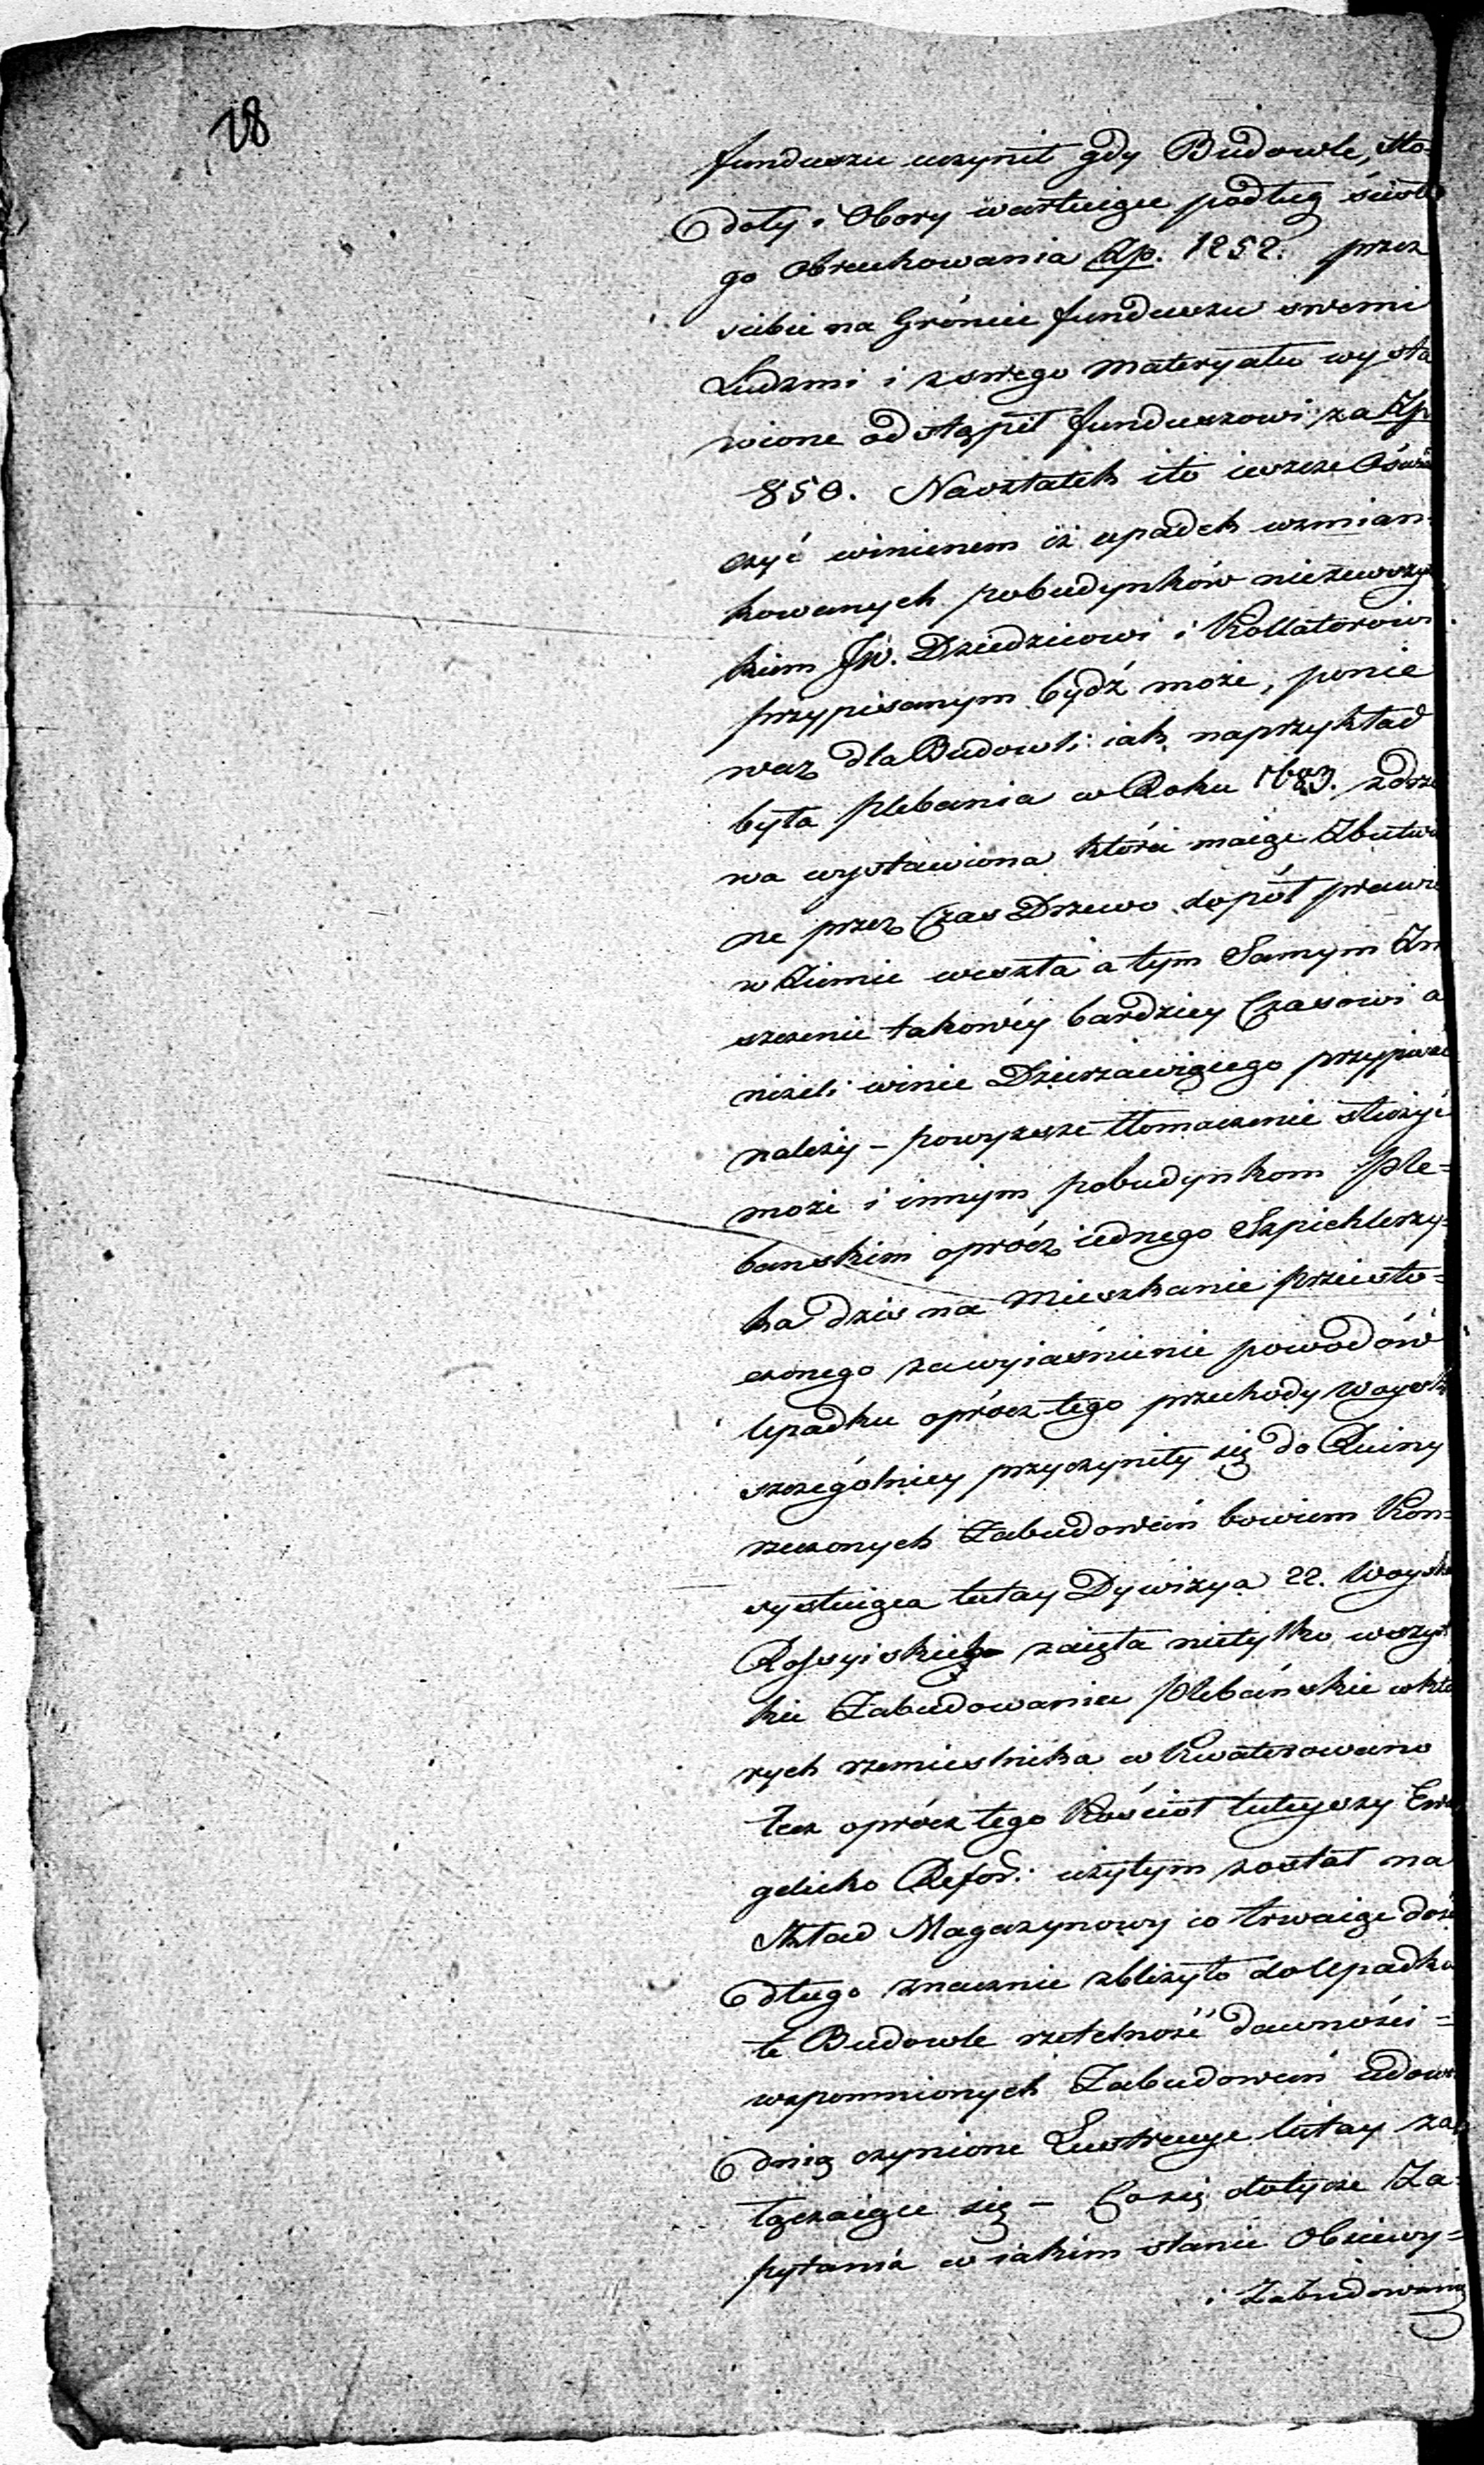 18
funduszu uczynił gdy Budowle, Sto-
doły i Obory wartuiące podług
go Obrachowania Złp. 1252. przez
siebie na Gróncie funduszu swemi
Ludzmi i z swego Materyału wysta
wione odstąpił funduszowi za Złp
850. Naostatek ito ieszcze
czyć winienem iż upadek wzmian-
kowanych pobudynków
kiem JW. Dziedzicowi i Kollatorowi
przypisanym bydź może, ponie
waz dla Budowli iak naprzykład
była Plebania w Roku 1683. zdrze
wa wystawiona któréi maiąc Zbutwia
ne przez Czas Drzewo dopół prawie
w Ziemie weszła a tym Samym Zni
szczenie takowéy bardziey Czasowi a
niżeli winie Dzierzawiącego przypisać
należy – powyzsze tłomaczenie służyć
może i innym pobudynkom Ple-
banskim oprócz iednego Szpichlerzy-
ka dzis na Mieszkanie przeisto-
czonego za wyiaśnienie powodów
Upadku oprócz tego przechody Woysk
szczególniey przyczyniły się do Ruiny
rzeczonych Zabudowań bowiem Kon-
systuiąca tutay Dywizya 22. Woyska
Rossyiskiego zaięła nietylko wszyst
kie Zabudowania Plebańskie w któ
rych rzemieslnika w Kwaterowano
lecz oprócz tego Kościoł tuteyszy Ewa
gelicko Refor: użytym został na
Skład Magazynowy co trwaiąc dość
długo znacznie zbliżyło do Upadku
te Budowle rzetelność dawności =
wspomnionych Zabudowań Udowo
dnią czynione Lustracye tutay za
łączaiące się – Co się dotycze Za-
pytania w iakim stanie Obsiewy =
i Zabudowania